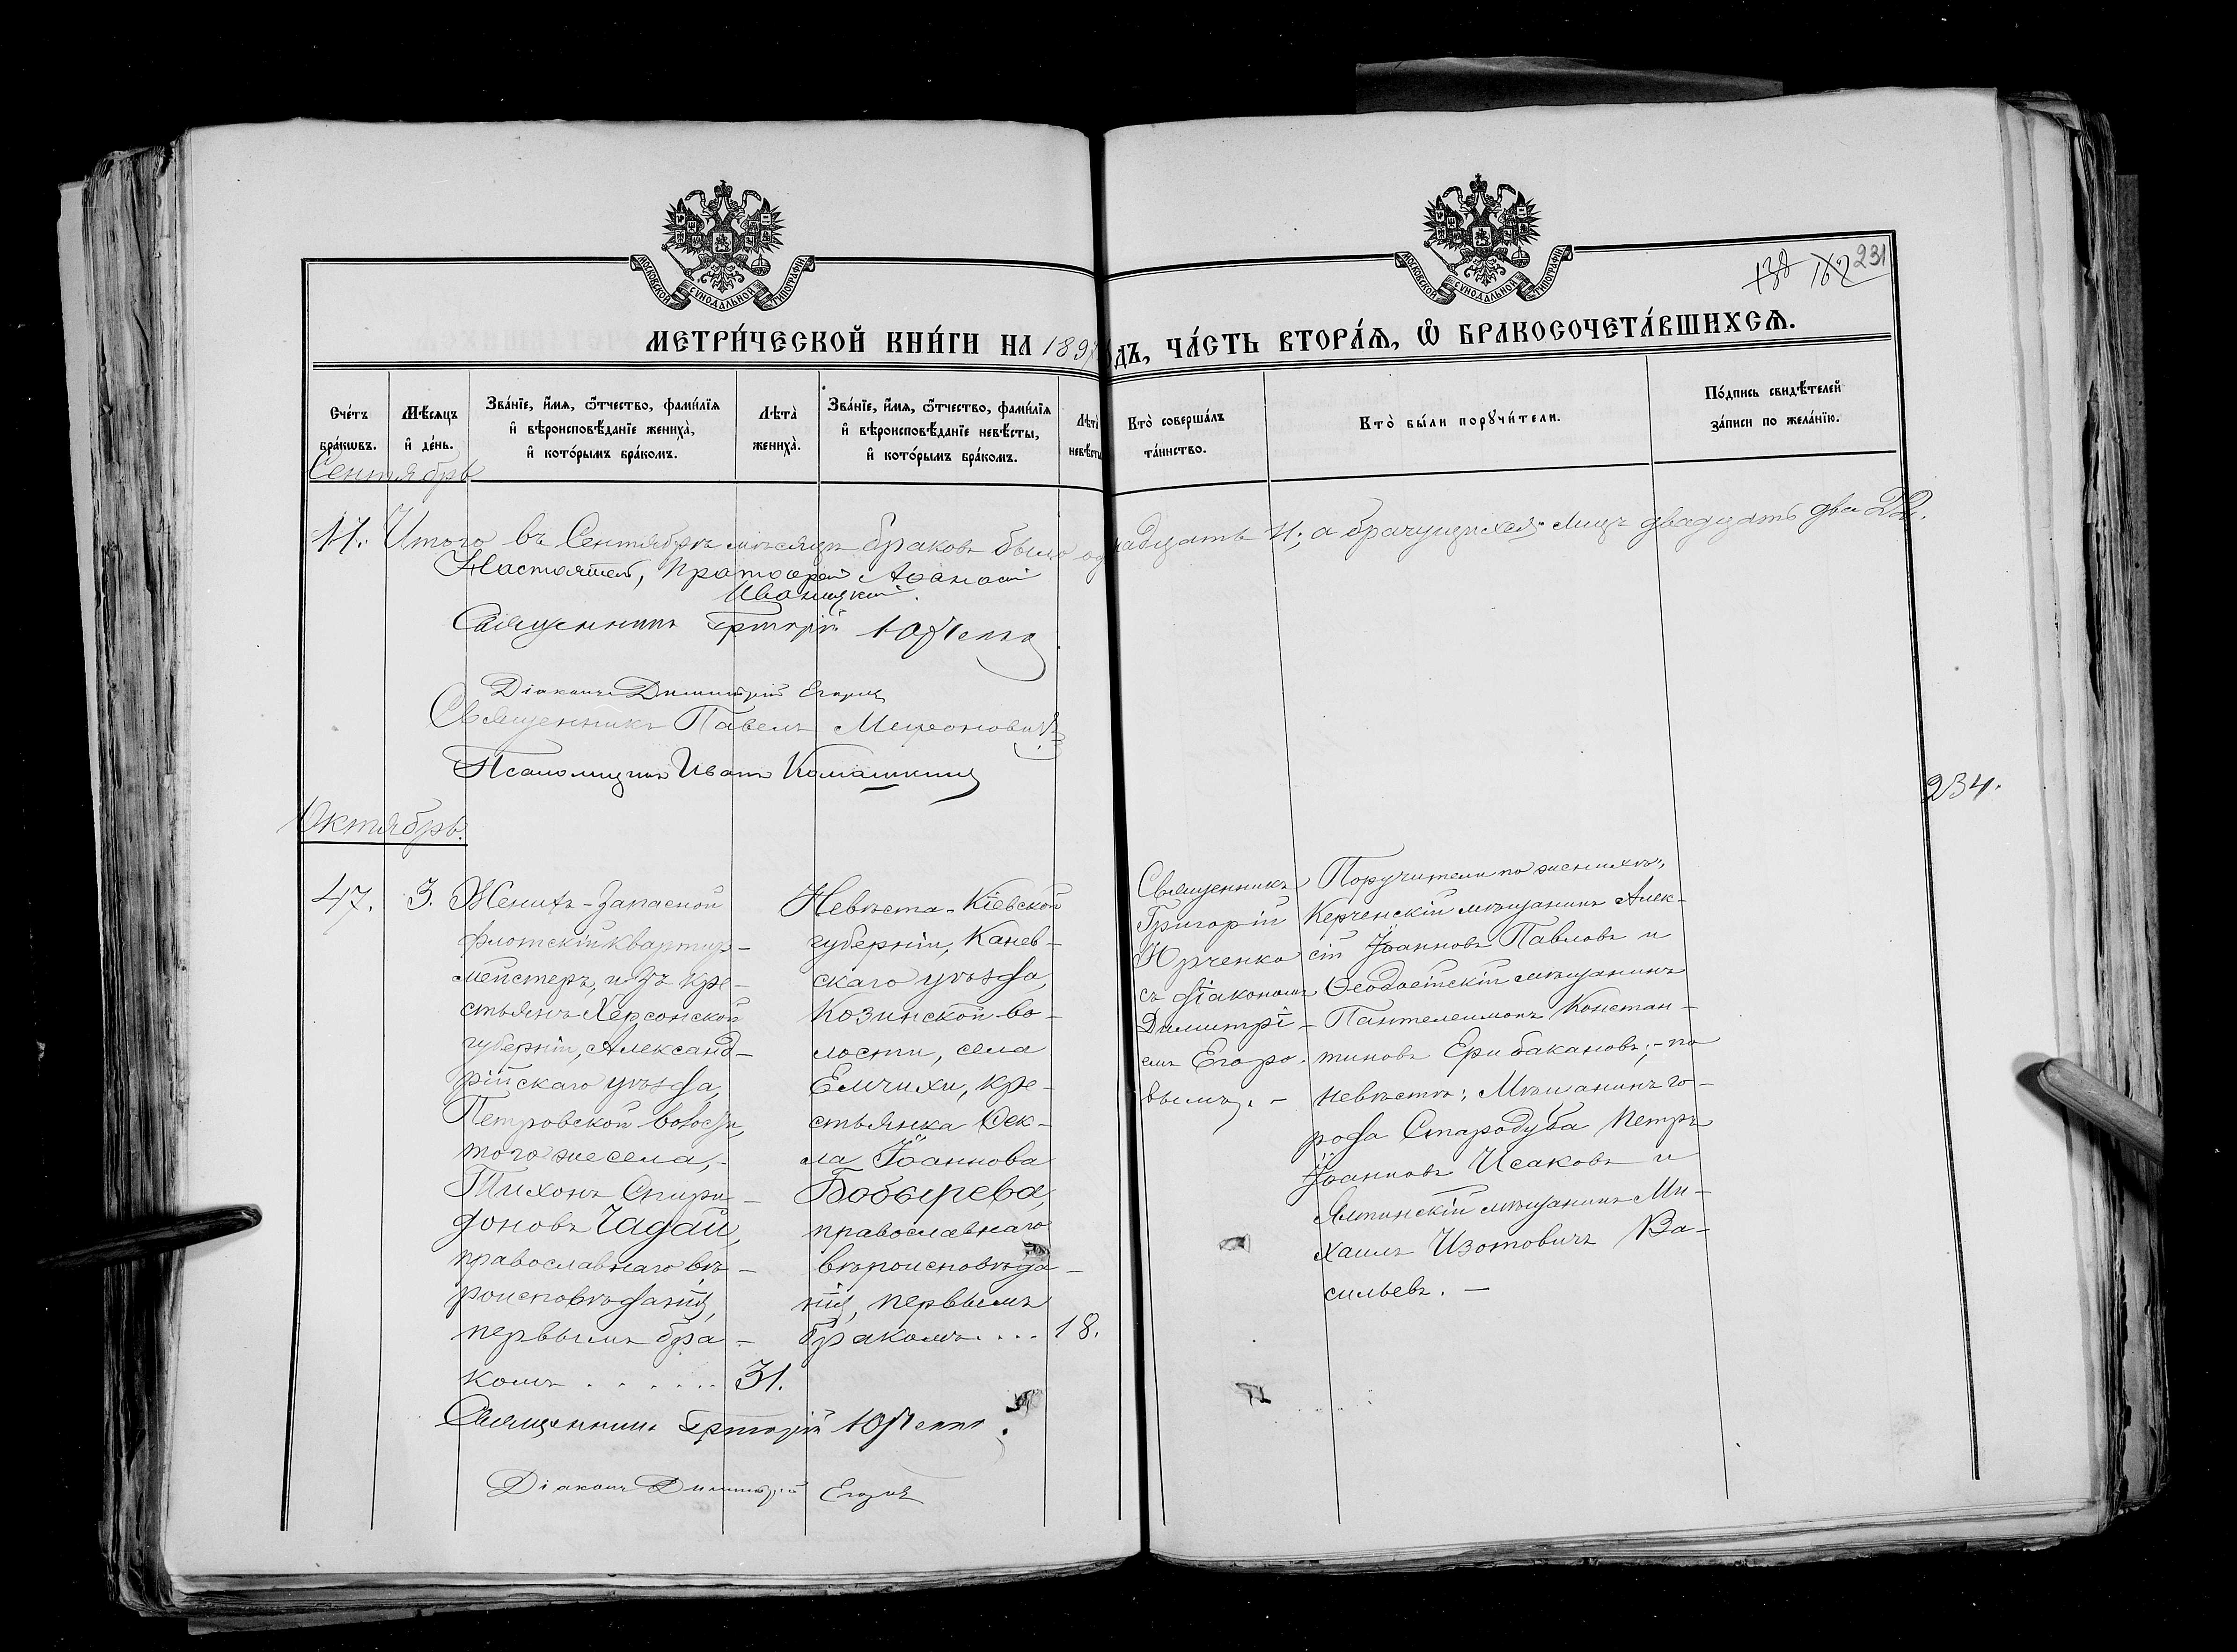 МОСКОВСКОЙ СѴНОДАЛЬНОЙ ТИПОГРАФІИ
МОСКОВСКОЙ СѴНОДАЛЬНОЙ ТИПОГРАФІИ
138 162 231
МЕТРИ́ЧЕСКОЙ КНИ́ГИ НА 189 ДЪ, ЧА́СТЬ ВТОРА́Ѧ, Ѡ҆ БРАКОСОЧЕТА́ВШИХСѦ.
Сче́тъ бра́кѡвъ.
Мѣ́сѧцъ и҆ де́нь.
Зва́нїе, и҆́мѧ, ѻ҆́тчество, фами́лїѧ и҆ вѣроисповѣ́данїе жениха̀, и҆ кото́рымъ бра́комъ.
Лѣта̀ жениха̀.
Зва́нїе, и҆́мѧ, ѻ҆́тчество, фами́лїѧ и҆ вѣроисповѣ́данїе невѣ́сты, и҆ кото́рымъ бра́комъ.
Лѣта̀ невѣ́сты
Кто̀ соверша́лъ та́инство.
Кто̀ бы́ли порꙋчи́тели.
По́дпись свидѣ́телей за́писи по жела́нїю.
Сентябрь
11. Итого въ Сентябрѣ мѣсяцѣ браковъ было одинадцать 11; а брачущихся лицъ двадцать два 22.
Настоятель, Протоіерей Аѳанасій
Иваницкій.
Священникъ Григорій Юрченко
Діаконъ Димитрій Егоровъ
Священникъ Павелъ
Псаломщикъ Иванъ Комашкинъ
234.
Октябрь.
47. 3. Женихъ - Запасной
флотскій квартир-
мейстеръ, изъ кре-
стьянъ Херсонской
губерніи, Александ-
рійскаго уѣзда,
Петровской волости,
того же села, -
Тихонъ Спири-
доновъ Чадай,
православнаго вѣ-
роисповѣданія,
первымъ бра-
комъ . . . . . . 31.
Невѣста - Кіевской
губерніи, Канев-
скаго уѣзда,
Козинской во-
лости, села
Емчихи, кре-
стьянка Ѳек-
ла Іоаннова
Бобырева,
православнаго
вѣроисповѣда-
нія, первымъ
бракомъ . . . 18.
Священникъ
Григорій
Юрченко
съ діакономъ
Димитрі-
емъ Егоро-
вымъ. -
Поручители по женихѣ:
Керченскій мѣщанинъ Алек-
сій Іоанновъ Павловъ и
Ѳеодосійскій мѣщанинъ
Пантелеимонъ Констан-
тиновъ Ерибакановъ; - по
невѣстѣ: Мѣщанинъ го-
рода Стародуба Петръ
Іоанновъ Исаковъ и
Ялтинскій мѣщанинъ Ми-
хаилъ Изотовичъ Ва-
сильевъ. -
Священникъ Григорій Юрченко.
Діаконъ Димитрій Егоровъ